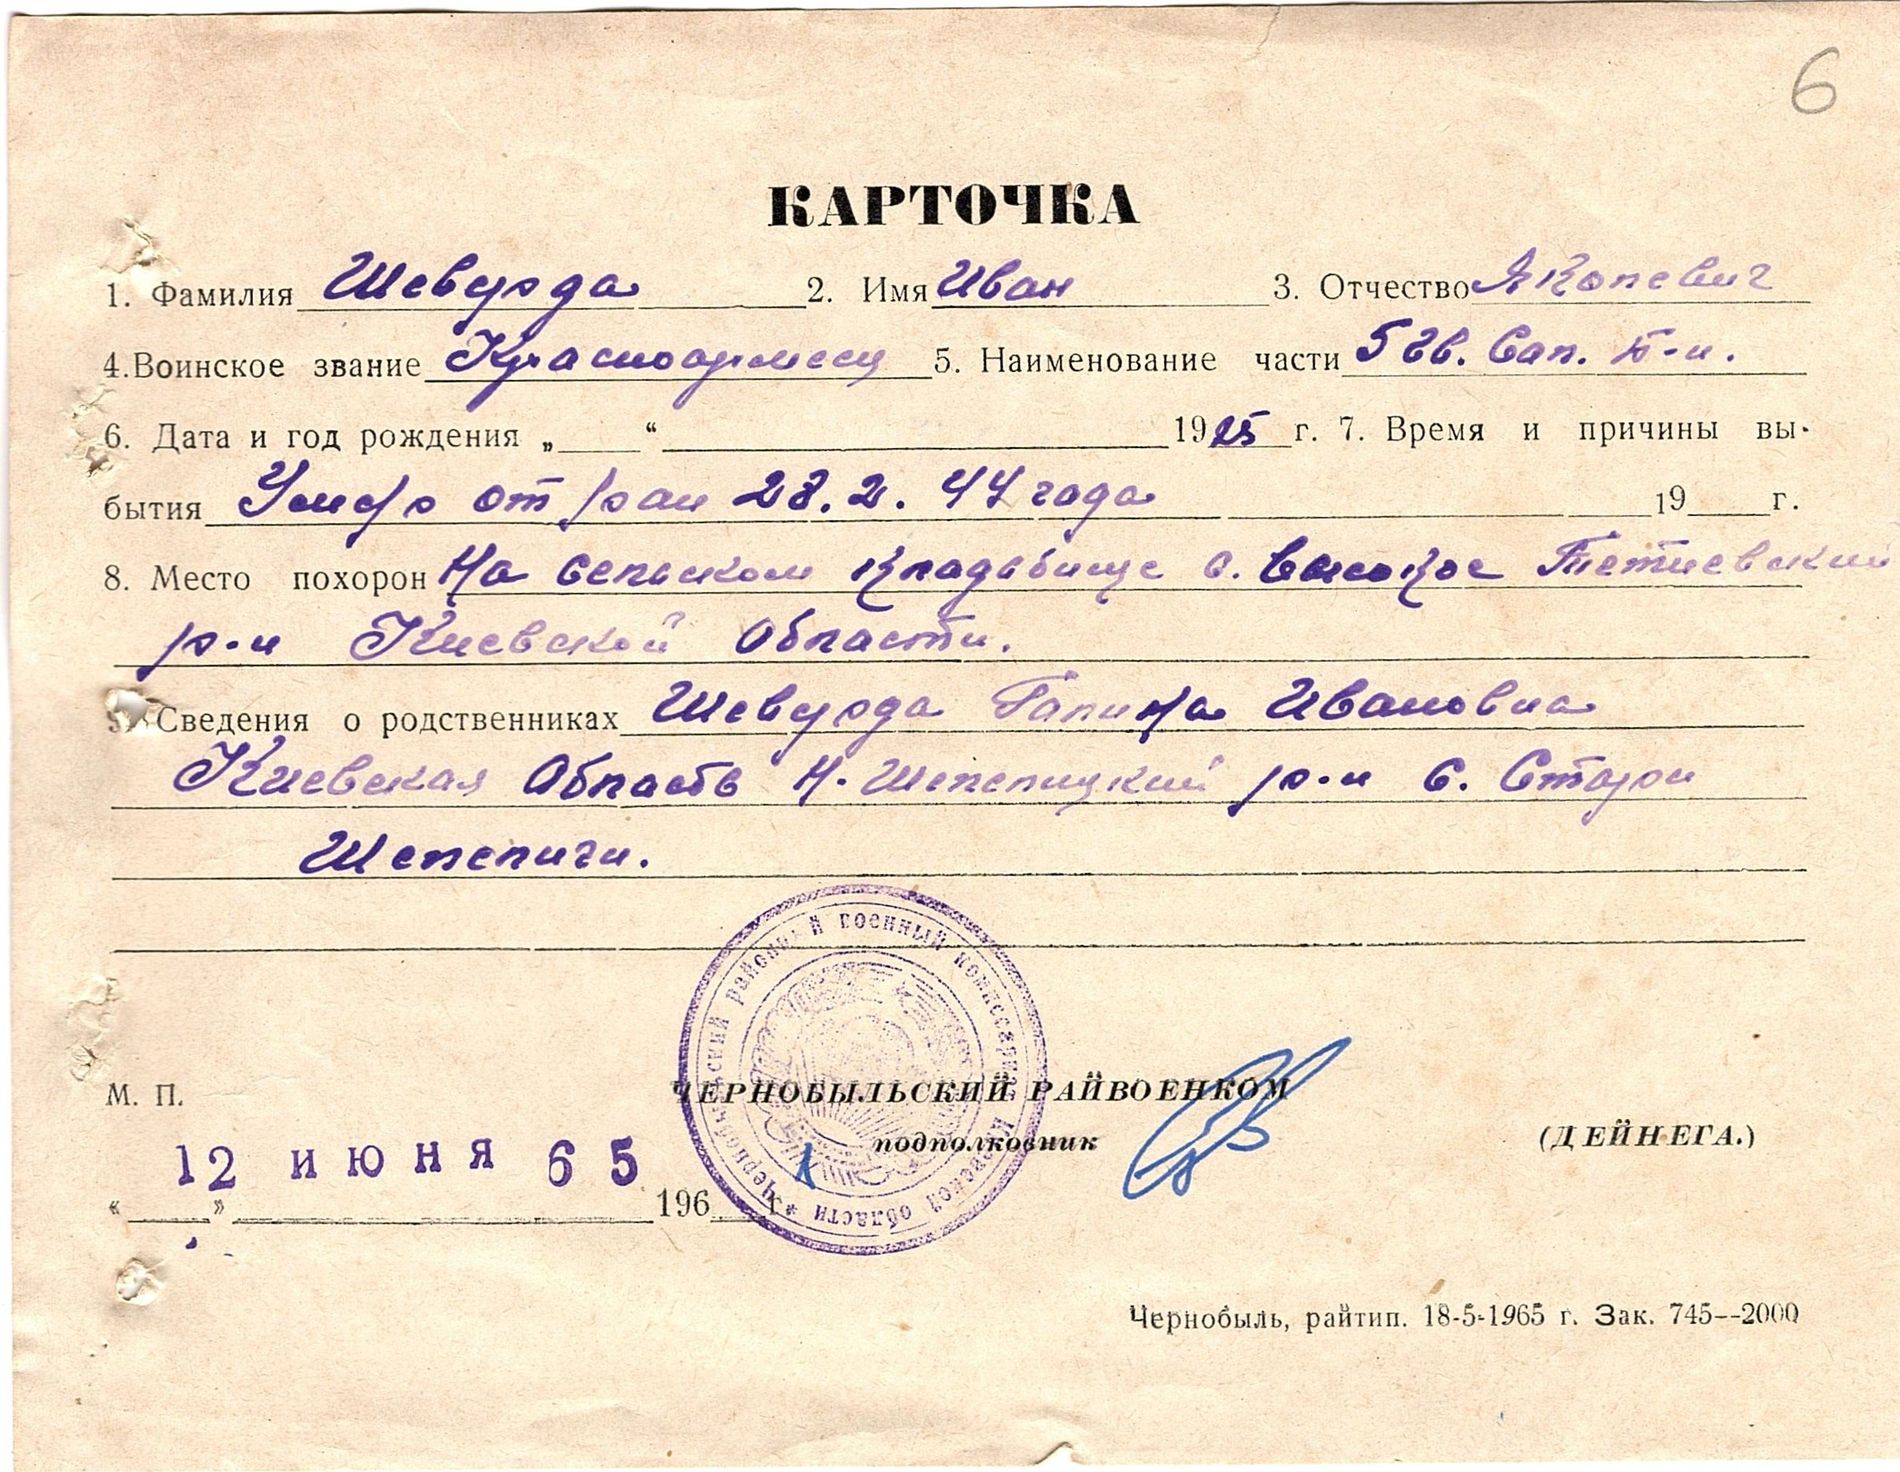 6
КАРТОЧКА
1. Фамилия Шевурда 2. Имя Иван 3. Отчество Якопевич
4. Воинское звание Красноармеец 5. Наименование части 5 гв. Сап. б-н.
6. Дата и год рождения „ “ 1925 г. 7. Время и причины вы-
бытия Умер от ран 28.2.44 года 19 г.
8. Место похорон На сельском кладбище с. Высокое Тетиевский
р-н Киевской Области.
9. Сведения о родственниках Шевурда Галина Ивановна
Киевская Область Н. Шепелицкий р-н с. Стари
Шепеличи.
Чернобыльский районный военный комиссариат Киевской области *
М. П. ЧЕРНОБЫЛЬСКИЙ РАЙВОЕНКОМ
подполковник (ДЕЙНЕГА.)
12 ИЮНЯ 65
« » 196 г.
Чернобыль, райтип. 18-5-1965 г. Зак. 745--2000